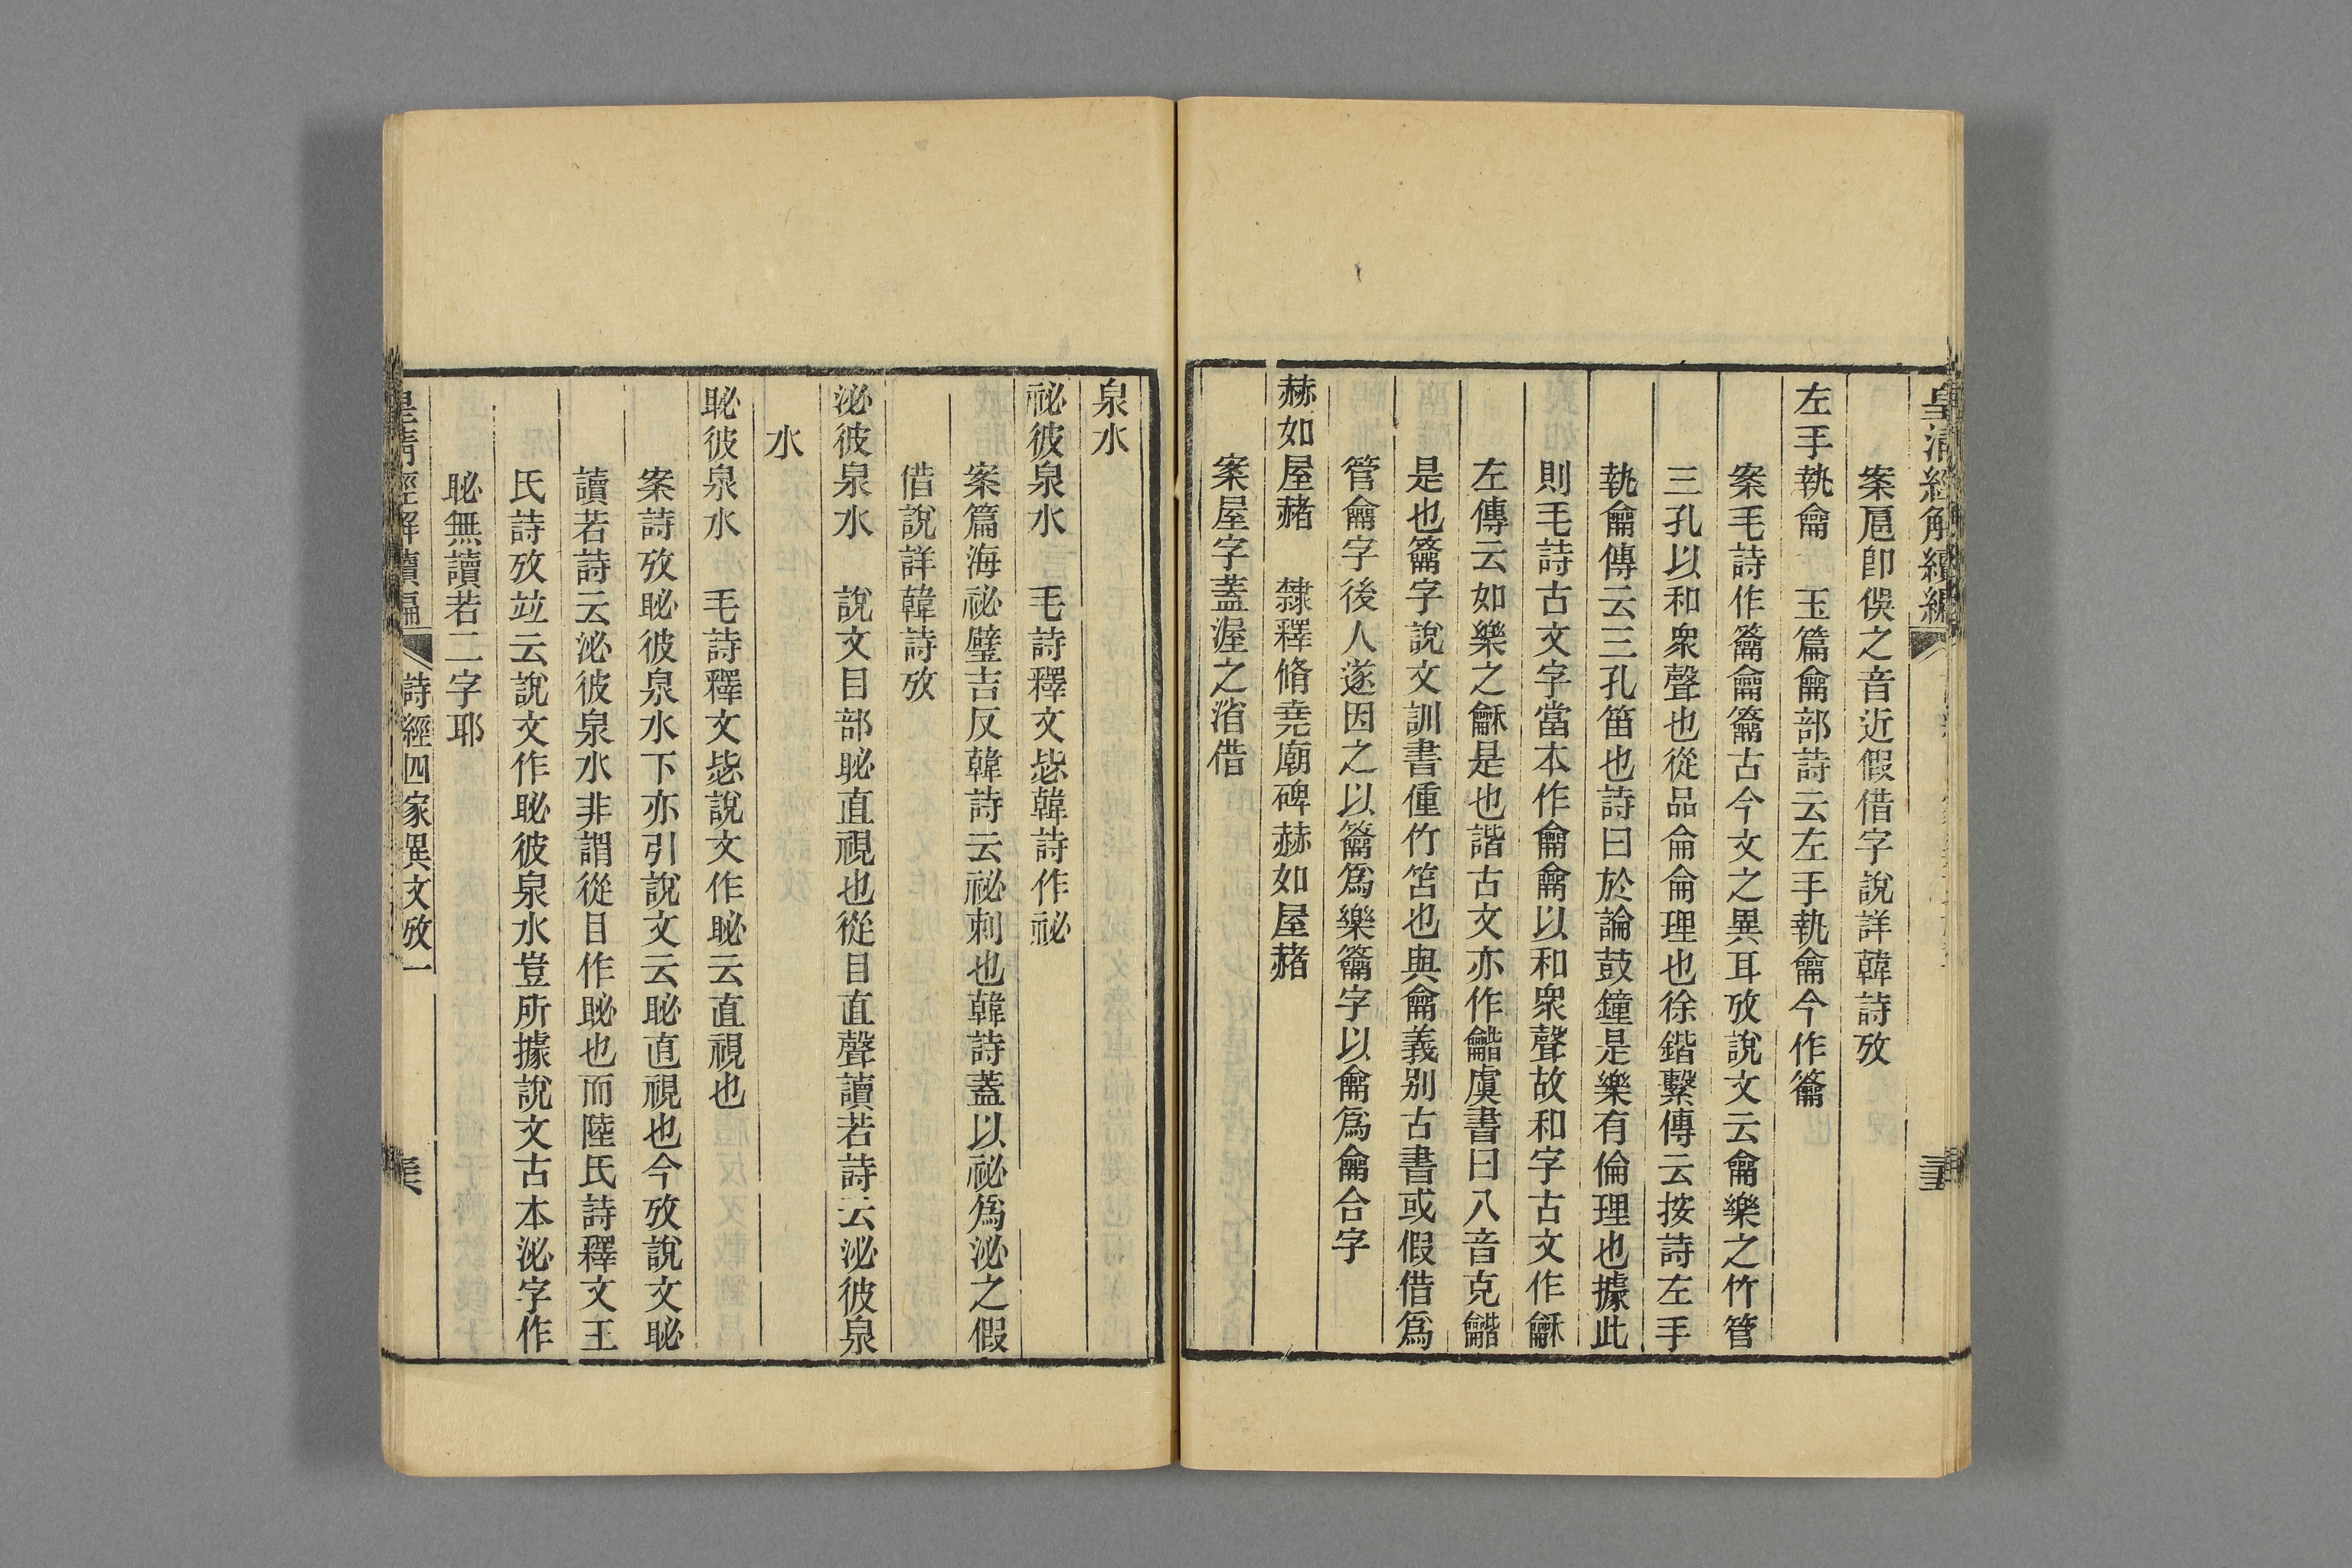 皇清經解續編
案扈卽俁之音近假借字說詳韓詩攷
左手執龠　玉篇龠部詩云左手執龠今作籥
案毛詩作籥龠籥古今文之異耳攷說文云龠樂之竹管
三孔以和衆聲也從品侖侖理也徐鍇繫傳云按詩左手
執龠傳云三孔笛也詩曰於論鼓鐘是樂有倫理也據此
則毛詩古文字當本作龠龠以和衆聲故和字古文作龢
左傳云如樂之龢是也諧古文亦作龤虞書曰八音克龤
是也籥字說文訓書僮竹笘也與龠義别古書或假借爲
管龠字後人遂因之以籥爲樂籥字以龠爲龠合字
赫如屋赭　隸釋脩堯廟碑赫如屋赭
案屋字蓋渥之渻借
泉水
祕彼泉水　毛詩釋文毖韓詩作祕
案篇海祕璧吉反韓詩云祕刺也韓詩蓋以祕爲泌之假
借說詳韓詩攷
泌彼泉水　說文目部䀣直視也從目直聲讀若詩云泌彼泉
水
䀣彼泉水　毛詩釋文毖說文作䀣云直視也
案詩攷䀣彼泉水下亦引說文云䀣直視也今攷說文䀣
讀若詩云泌彼泉水非謂從目作䀣也而陸氏詩釋文王
氏詩攷竝云說文作䀣彼泉水豈所據說文古本泌字作
䀣無讀若二字耶
皇清經解續編　詩經四家異文攷一